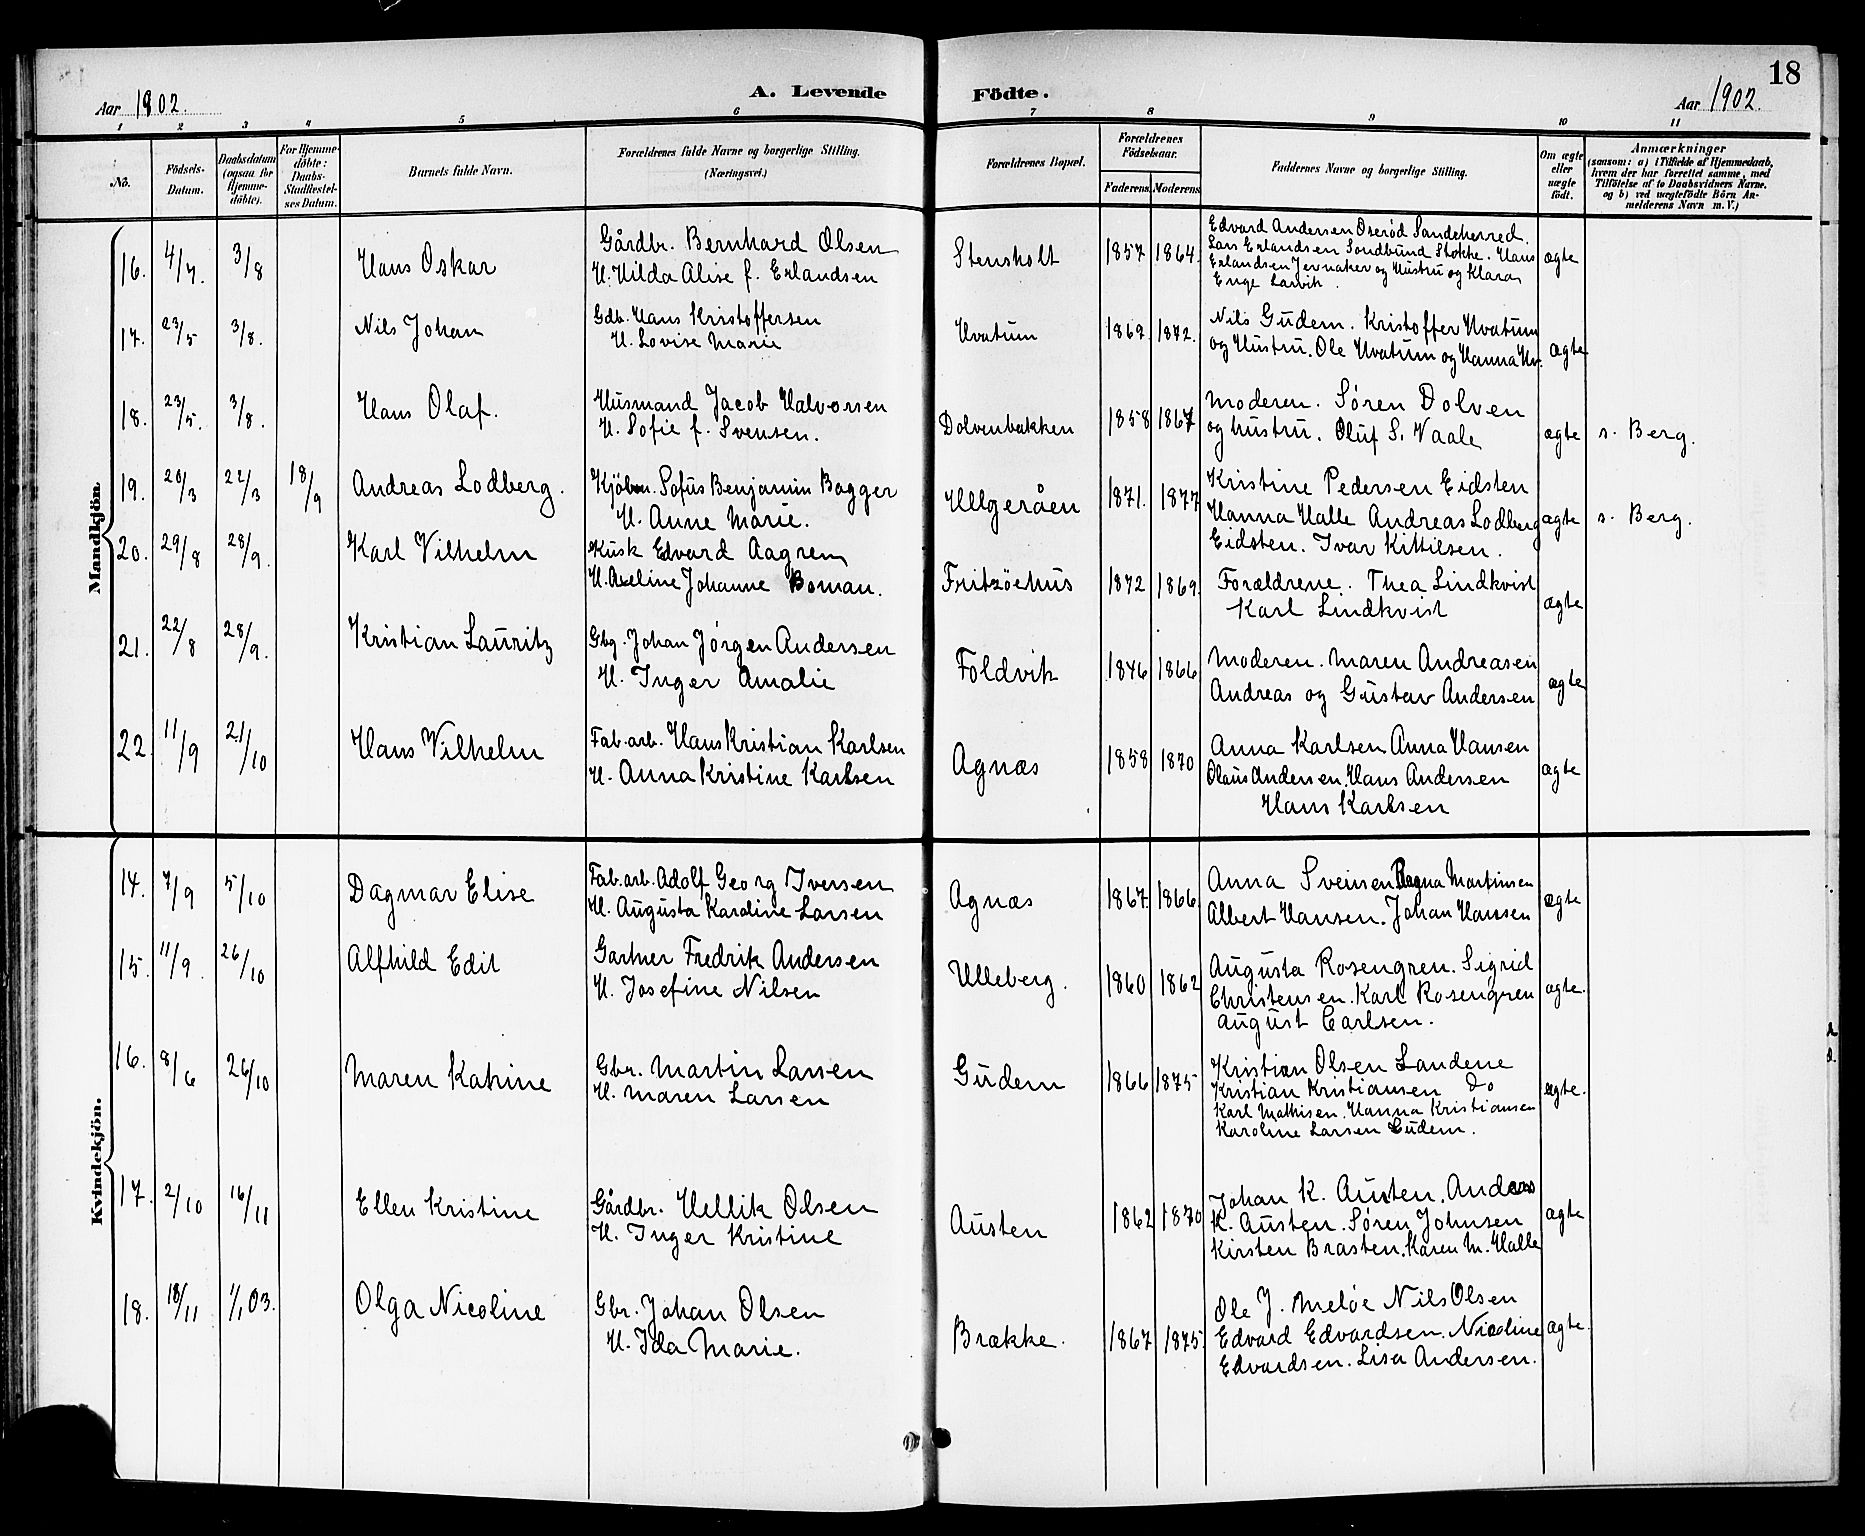 18
Aar 1902.
A. Levende Födte.
Aar 1902.
1 2 3 4 5 6 7 8 9 10 11
No.
Födsels-Datum.
Daabsdatum (ogsaa for Hjemme-döbte).
For Hjemme-döbte: Daabs-Stadfæstel-ses Datum.
Barnets fulde Navn.
Forældrenes fulde Navne og borgerlige Stilling. (Næringsvei.)
Forældrenes Bopæl.
Forældrenes Födselsaar.
Faderens. Moderens.
Faddernes Navne og borgerlige Stilling.
Om ægte eller uægte födt.
Anmærkninger
(saasom: a) i Tilfælde af Hjemmedaab, hvem der har forrettet samme, med Tilföielse af to Daabsvidners Navne, og b) ved uægtefödte Börn An-melderens Navn m. V.)
Mandkjön.
16. 4/7. 3/8 Hans Oskar
Gårdbr. Bernhard Olsen
H. Hilda Alise f. Erlandsen
Stensholt 1857 1864.
Edvard Andersen Sandeherred.
Lars Erlandsen Sondbund Stokke. Hans
Erlandsen Jernaker og Hustru og Klara
Enge Larvik.
ægte
17. 23/5 3/8. Nils Johan
Gdb. Hans Kristoffersen
H. Lovise Marie
Hvatum 1869. 1872.
Nils Gudem. Kristoffer Hvatum
og Hustru. Ole Hvatum og Hanna Hv.
ægte
18. 23/5. 3/8. Hans Olaf.
Husmand Jacob Halvorsen
H. Sofie f. Svensen.
Dolvenbakken 1858 1867
Moderen. Søren Dolven
og hustru. Oluf S. Vaale
ægte s. Berg.
19. 20/3 22/3 18/9 Andreas Lodberg.
Kjöbm. Sofus Benjamin Bagger
H. Anne Marie.
Ulgeråen 1871. 1877
Kristine Pedersen Eidsten
Hanna Halle Andreas Lodberg
Eidsten. Ivar Kittilsen.
ægte s. Berg.
20. 29/8 28/9. Karl Vilhelm
Kusk Edvard Aagren
H. Axeline Johanne Boman.
Fritzöehus 1872 1869.
Forældrene. Thea Lindkvist
Karl Lindkvist
ægte
21. 22/8 28/9. Kristian Lauritz
Gbg. Johan Jörgen Andersen
H. Inger Amalie
Foldvik 1846 1866
Moderen. Maren Andreasen
Andreas og Gustav Andersen
ægte
22. 11/9 21/10 Hans Vilhelm
Fab.arb. Hans Kristian Karlsen
H. Anna Kristine Karlsen
Agnæs 1858 1870
Anna Karlsen Anna Hansen
Olaus Andersen Hans Andersen
Hans Karlsen
ægte
Kvindekjön.
14. 7/9 5/10 Dagmar Elise
Fab.arb. Adolf Georg Iversen
H. Augusta Karoline Larsen
Agnæs 1867 1866
Anna Svensen Ragna Martinsen
Albert Hansen. Johan Hansen
ægte
15. 11/9. 26/10 Alfhild Edit
Gartner Fredrik Andersen
H. Josefine Nilsen
Ulleberg. 1860 1862
Augusta Rosengren. Sigrid
Christensen. Karl Rosengren
August Carlsen.
ægte.
16. 8/6 26/10 Maren Katrine
Gbr. Martin Larsen
H. Maren Larsen
Gudem 1866 1875
Kristian Olsen Landene
Kristian Kristiansen do
Karl Mathisen. Hanna Kristiansen
Karoline Larsen Gudem.
ægte.
17. 2/10 16/11 Ellen Kristine
Gårdbr. Hellik Olsen
H. Inger Kristine
Austen 1862 1870
Johan K. Austen. Andreas
K. Austen. Søren Johnsen
Kirsten Brasten. Karen M. Halle
ægte
18. 18/11 1/1 03. Olga Nicoline
Gbr. Johan Olsen
H. Ida Marie.
Brække. 1867 1875.
Ole J. Meløe Nils Olsen
Edvard Edvardsen. Nicoline
Edvardsen. Lisa Andersen.
ægte.